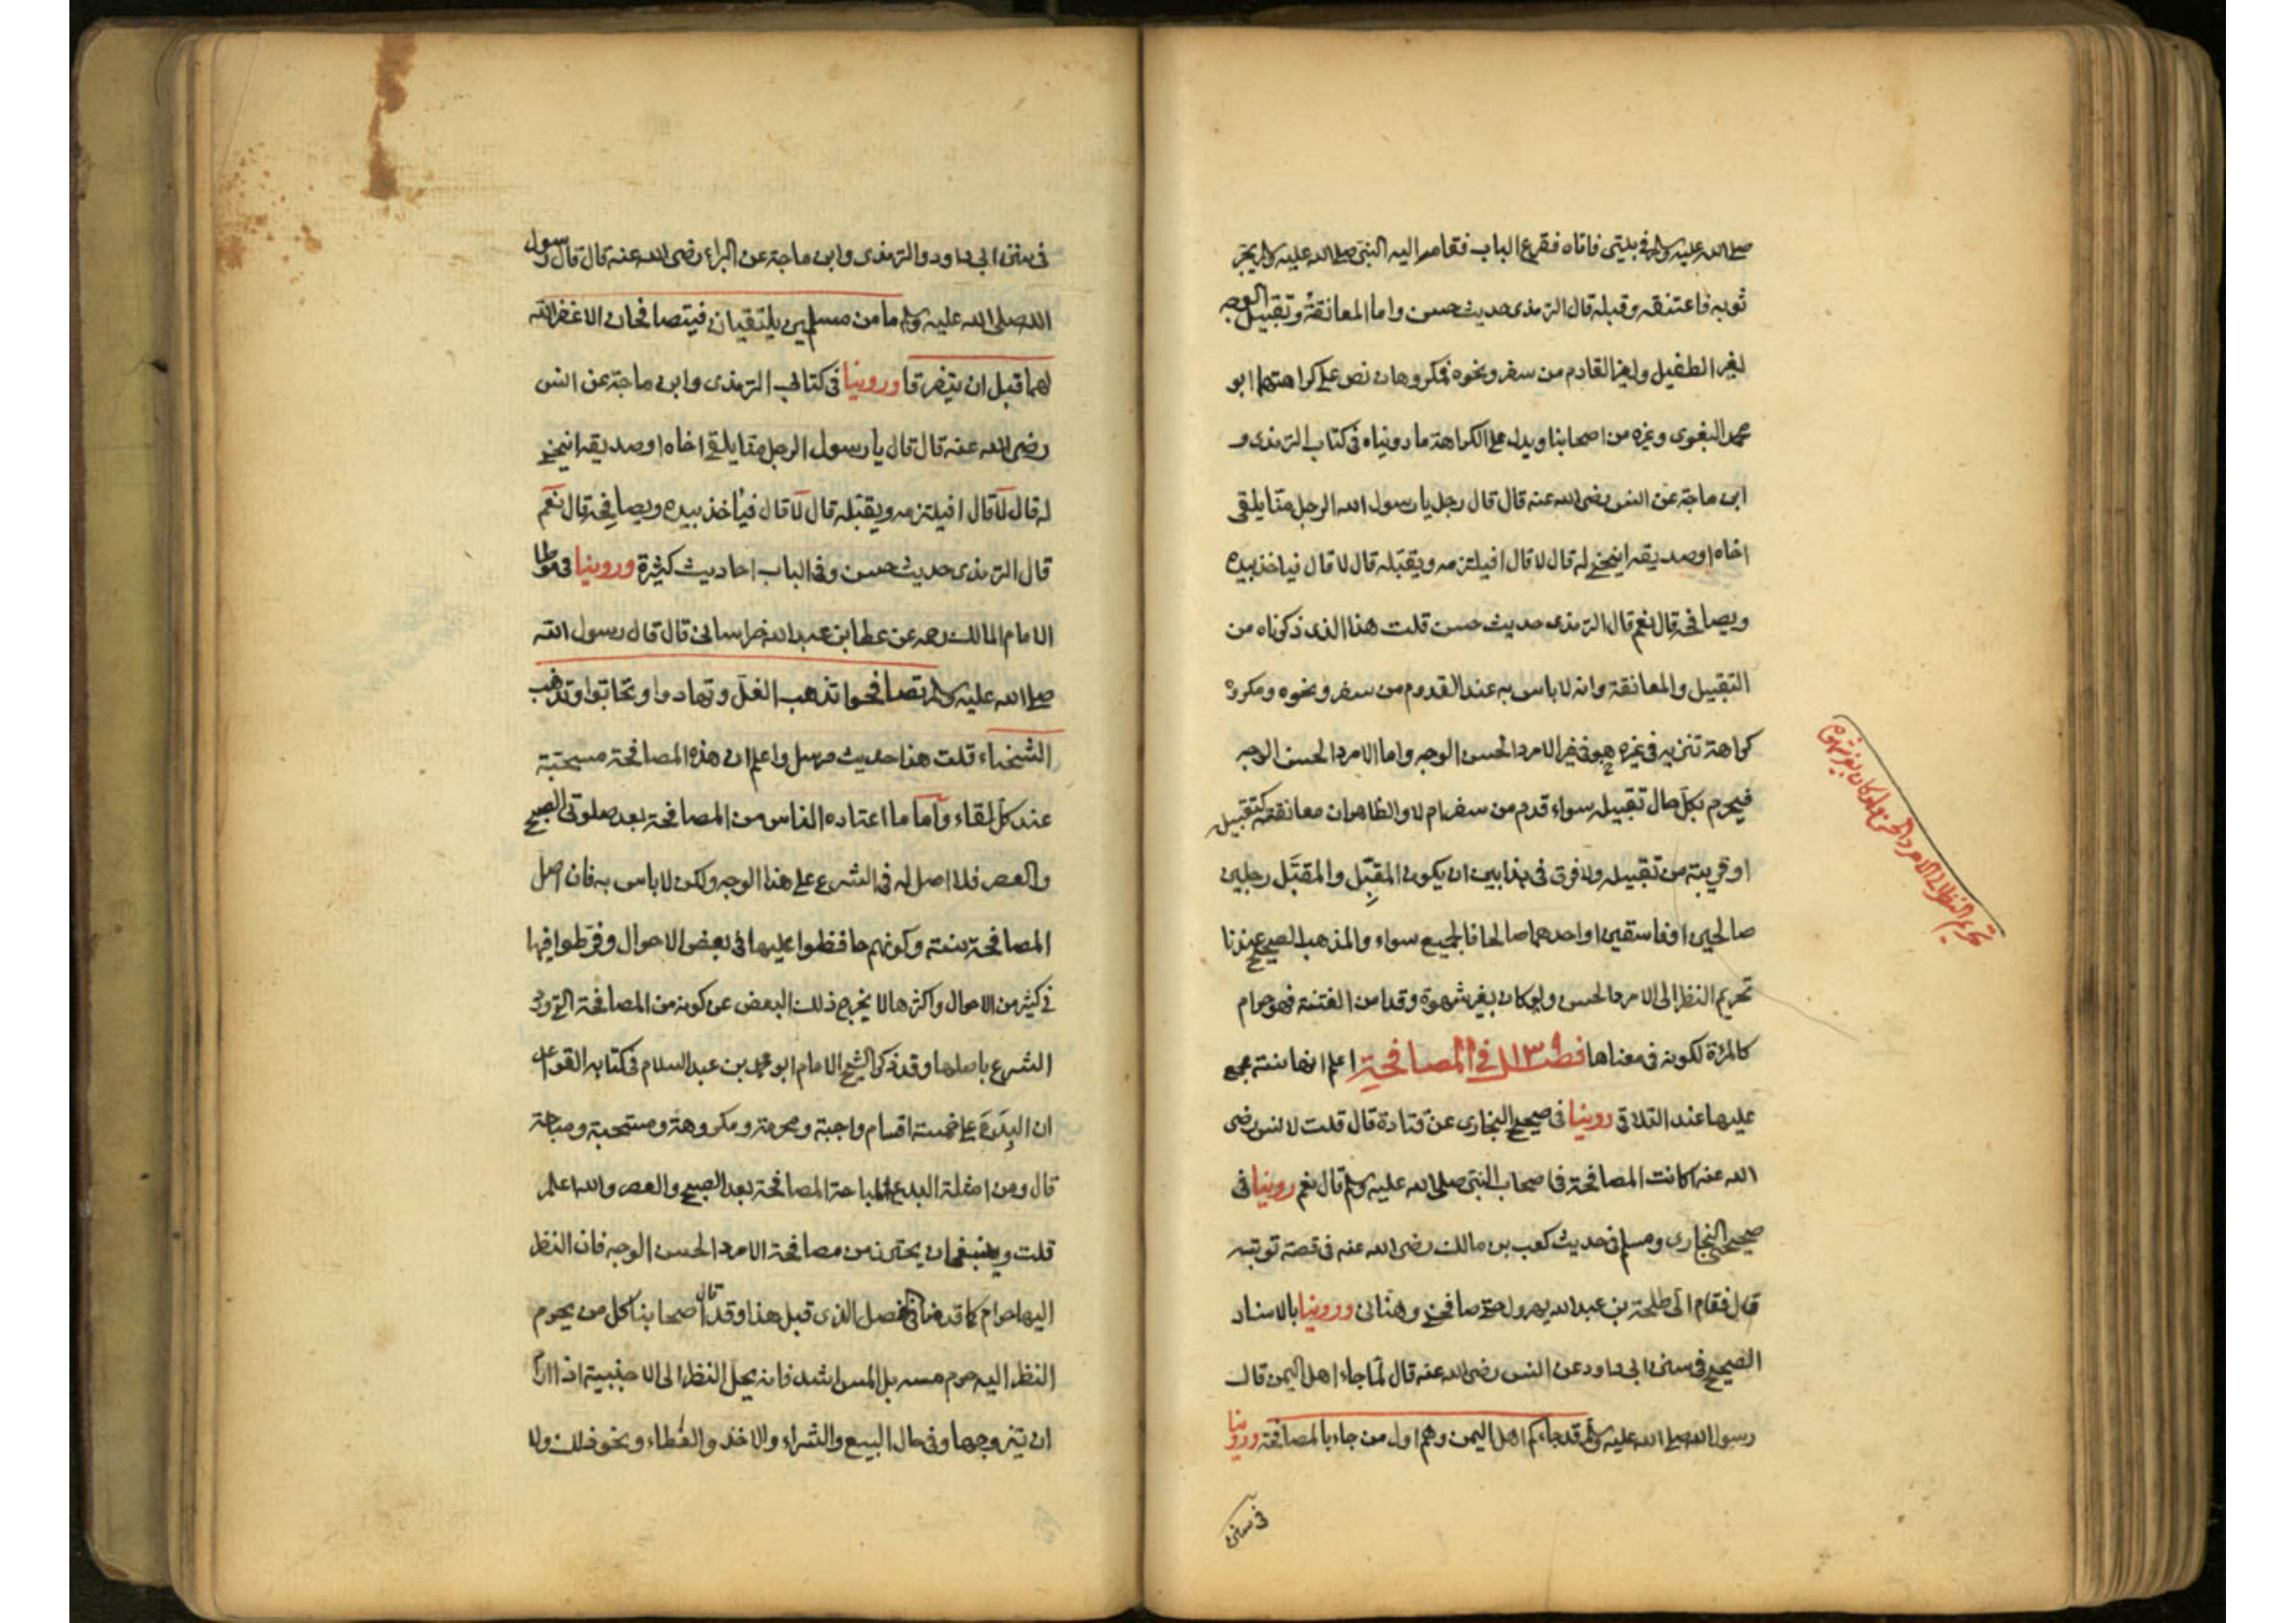 صلى الله عليه وسلم في بيتي فاتاه فقرع الباب فقام اليه النبي صلى الله عليه وسلم يجر
ثوبه فاعتنقه وقبله قال الترمذى حديث حسن واما المعانقة وتقبيل الوجه
لغير الطفيل ولغير القادم من سفر ونحوه فمكروهان نص على كراهتهما ابو
محمد البغوى وغيره من اصحابنا ويدل على الكراهة ما روينا ه فى كتاب الترمذى و
ابن ماجة عن انس رضى الله عنه قال قال رجل يا رسول الله الرجل منا يلقى
اخاه اوصديقه اينحنى له قال لا قال افيلتزمه ويقبّله قال لا قال فياخذ بيده
ويصافحه قال نعم قال الترمذى حديث حسن قلت هذا الذى ذكرناه من
التقبيل والمعانقة وانه لاباس به عند القدوم من سفر ونحوه ومكروه
كراهة تنزيه فى غيره هو فى غير الامرد الحسن الوجه واما الامرد الحسن الوجه
فيحرم بكل حال تقبيله سواء قدم من سفر ام لا والظاهر ان معانقته كتقبيله
او قريبة من تقبيله ولا فرق فى هذا بين ان يكون المقبِّل والمقبَّل رجلين
صالحين اوفاسقين او احدهما صالحا فالجميع سواء والمذهب الصحيح عندنا
تحريم النظر الى الامرد الحسن ولو كان بغير شهوة وقد امن الفتنة فهو حرام
كالمرٔة لكونه فى معناها فصل فى المصافحة اعلم انها سنة مجمع
عليها عند التلاقى روينا فى صحيح البخارى عن قتادة قال قلت لانس رضى
الله عنه اكانت المصافحة فى اصحاب النبى صلى الله عليه وسلم قال نعم روينا فى
صحيحى البخارى ومسلم فى حديث كعب بن مالك رضى الله عنه فى قصة توبته
قال فقام الى طلحة بن عبدالله يهرول حتى صافحنى وهنانى وروينا بالاسناد
الصحيح فى سنن ابى داود عن انس رضى الله عنه قال لما جاء اهل اليمن قال
رسول الله صلى الله عليه وسلم قد جاءكم اهل اليمن وهم اول من جاء بالمصافحة وروينا
فى سنن
تحريم النظر الى الامرد الحسن ولو كان بغير شهوة
فى سنن ابى داود والترمذى وابن ماجة عن البراء رضى الله عنه قال قال رسول
الله صلى الله عليه وسلم ما من مسلمين يلتقيان فيتصافحان الا غفر الله
لهما قبل ان يتفرقا وروينا فى كتابى الترمذى وابن ماجة عن انس
رضى الله عنه قال قال يا رسول الرجل منا يلقى اخاه اوصديقه اينحنى
له قال لا قال افيلتزمه ويقبّله قال لا قال فيأخذ بيده ويصافحه قال نعم
قال الترمذى حديث حسن وفى الباب احاديث كثيرة وروينا فى موطا
الامام المالك رحمه عن عطا بن عبدالله خراسانى قال قال رسول الله
صلى الله عليه وسلم تصافحوا تذهب الغل وتهادوا وتحابوا وتذهب
الشحناء قلت هذا حديث مرسل واعلم ان هذه المصافحة مستحبة
عند كل لقاء واما ما اعتاده الناس من المصافحة بعد صلوتى الصبح
والعصر فلا اصل له فى الشرع على هذا الوجه ولكن لاباس به فان اصل
المصافحة سنة وكونهم حافظوا عليها فى بعض الاحوال وفرّطوا فيها
فى كثير من الاحوال واكثرها لا يخرج ذلك البعض عن كونه من المصافحة التى ورد
الشرع باصلها وقد ذكر الشيخ الامام ابو محمد بن عبدالسلام فى كتابه القواعد
ان البِدَعَ على خمسة اقسام واجبة ومحرمة ومكروهة ومستحبة ومباحة
قال ومن امثلة البدع المباحة المصافحة بعد الصبح والعصر والله اعلم
قلت وينبغى ان يحترز من مصافحة الامرد الحسن الوجه فان النظر
اليها حرام كما قدمنا فى الفصل الذى قبل هذا وقد قال اصحابنا كل من يحرم
النظر اليه حرم مسه بل المس اشد فانه يحل النظر الى الاجنبية اذا اراد
ان يتزوجها وفى حال البيع والشراء والاخذ والعطاء ونحو ذلك ولا